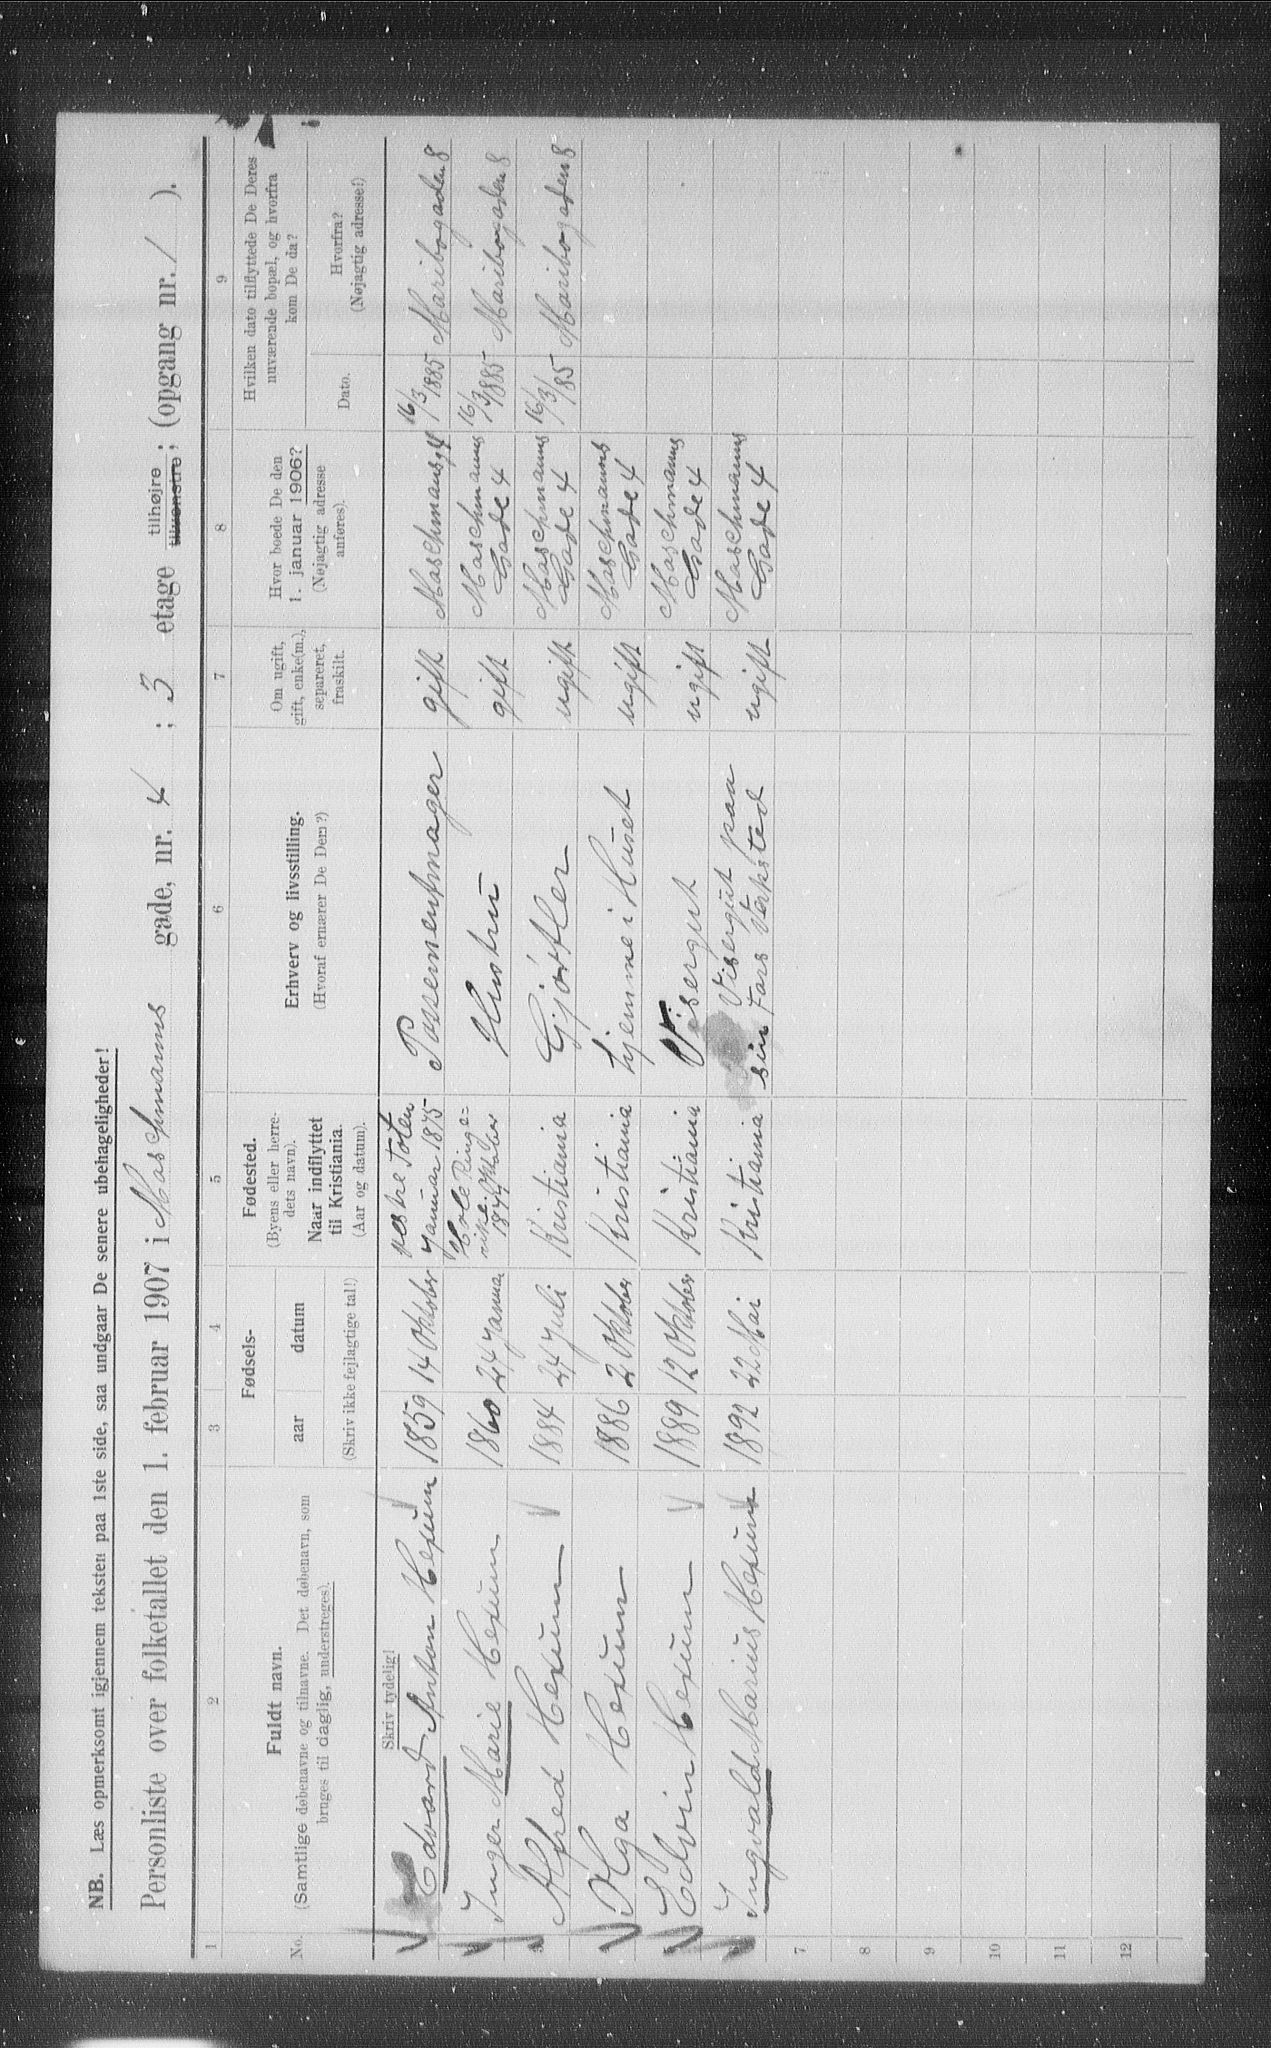 NB. Læs opmerksomt igjennem teksten paa 1ste side, saa undgaar De senere ubehageligheder!
Personliste over folketallet den 1. februar 1907 i Maschmanns gade, nr. 4 ; 3 etage tilhøjre tilvenstre; (opgang nr. / ).
1 2 3 4 5 6 7 8 9
No.
Fuldt navn.
(Samtlige døbenavne og tilnavne. Det døbenavn, som
bruges til daglig, understreges).
Fødsels-
aar datum
(Skriv ikke fejlagtige tal!)
Fødested.
(Byens eller herre-
dets navn).
Naar indflyttet
til Kristiania.
(Aar og datum).
Erhverv og livsstilling.
(Hvoraf ernærer De Dem?)
Om ugift,
gift, enke(m.),
separeret,
fraskilt.
Hvor boede De den
1. januar 1906?
(Nøjagtig adresse
anføres).
Hvilken dato tilflyttede De Deres
nuværende bopæl, og hvorfra
kom De da?
Dato.
Hvorfra?
(Nøjagtig adresse!)
Skriv tydelig!
Edvard Anton Hexum 1859 14 Oktober vestre Toten Januar 1875 Possementmager gift Maschmansg 4 16/3 1885 Maribogaden 8
Inger Marie Hexum 1860 24 Januar Hole Ringe-
rike Oktober
1874 Hustru gift Maschmanns
Gade 4 16/3 1885 Maribogaden 8
3 Alfred Hexum 1884 24 Juli Kristiania Gjørtler ugift Maschmanns
Gade 4 16/3/85 Maribogaden 8
Olga Hexum 1886 2 Oktober Kristiania hjemme i Huset ugift Maschmanns
Gade 4
Edvin Hexum 1889 12 Oktober Kristiania Visergut ugift Maschmanns
Gade 4
Ingvald Marius Hexum 1892 22 Mai Kristiania Visergut paa
sin Fars Verksted ugift Maschmanns
Gade 4
7
8
9
10
11
12